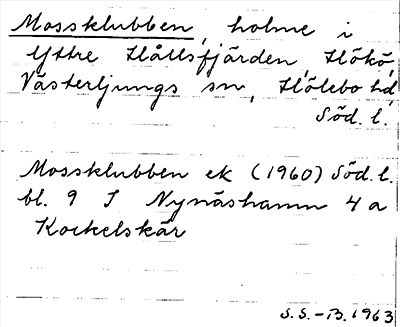 Mossklubben, holme i
Yttre Hållsfjärden, Hökö,
Västerljungs sn, Hölebo hd,
Söd. l.
Mossklubben ek (1960) Söd. l.
bl. 9 I Nynäshamn 4 a
Kockelskär
S. S. - B. 1963